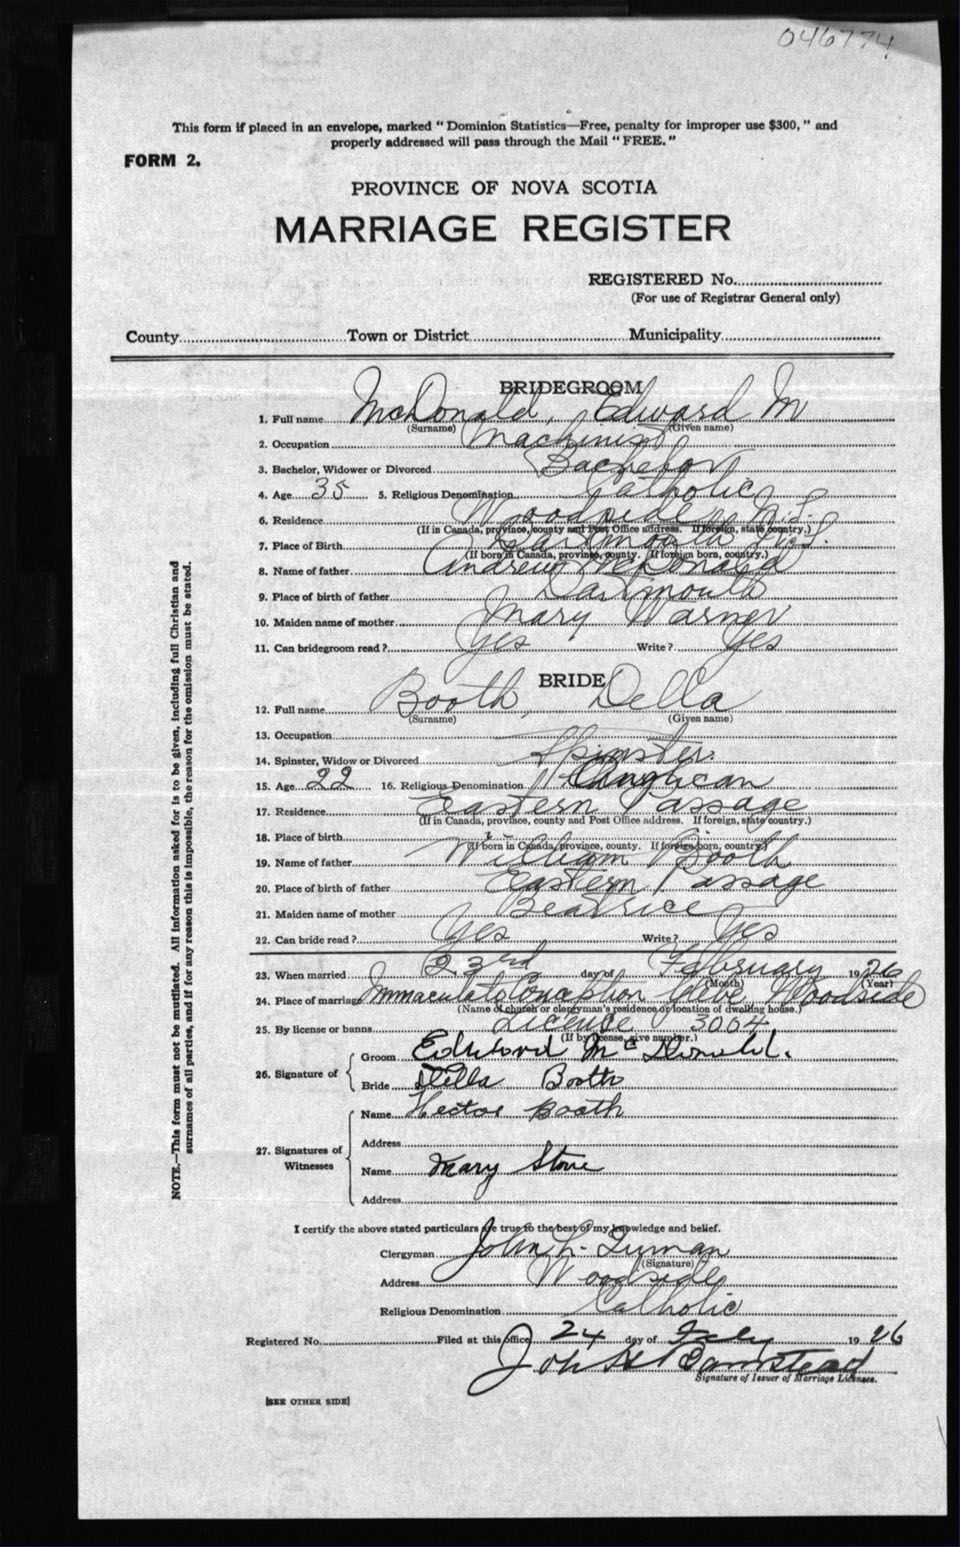 046774
This form if placed in an envelope, marked " Dominion Statistics—Free, penalty for improper use $300, " and
properly addressed will pass through the Mail " FREE. "
FORM 2.
PROVINCE OF NOVA SCOTIA
MARRIAGE REGISTER
REGISTERED No.
(For use of Registrar General only)
County Town or District Municipality
BRIDEGROOM
1. Full name McDonald, Edward M
(Surname) (Given name)
2. Occupation Machinist
3. Bachelor, Widower or Divorced Bachelor
4. Age 35 5. Religious Denomination Catholic
6. Residence Woodside N.S.
(If in Canada, province, county and Post Office address. If foreign, state country.)
7. Place of Birth Dartmouth N.S.
(If born in Canada, province, county. If foreign born, country.)
8. Name of father Andrew McDonald
9. Place of birth of father Dartmouth
10. Maiden name of mother Mary Warner
11. Can bridegroom read? Yes Write? Yes
BRIDE
12. Full name Booth, Della
(Surname) (Given name)
13. Occupation
14. Spinster, Widow or Divorced Spinster
15. Age 22 16. Religious Denomination Anglican
17. Residence Eastern Passage
(If in Canada, province, county and Post Office address. If foreign, state country.)
18. Place of birth
(If born in Canada, province, county. If foreign born, country.)
19. Name of father William Booth
20. Place of birth of father Eastern Passage
21. Maiden name of mother Beatrice
22. Can bride read? Yes Write? Yes
23. When married 23rd day of February 1926
(Month) (Year)
24. Place of marriage Immaculate Conception Glebe Woodside
(Name of church or clergyman's residence or location of dwelling house.)
25. By license or banns License 3064
(If by license, give number.)
26. Signature of Groom Edward McDonald.
Bride Della Booth
27. Signatures of Witnesses Name Hector Booth
Address
Name Mary Stone
Address
I certify the above stated particulars are true to the best of my knowledge and belief.
Clergyman John L. Quinan
(Signature)
Address Woodside
Religious Denomination Catholic
Registered No. Filed at this office 24 day of Feby 1926
Barnstead
Signature of Issuer of Marriage Licenses.
[SEE OTHER SIDE]
NOTE.—This form must not be mutilated. All information asked for is to be given, including full Christian and
surnames of all parties, and if for any reason this is impossible, the reason for the omission must be stated.